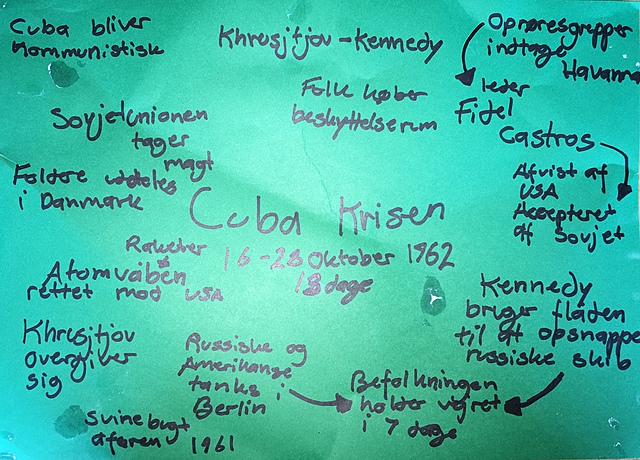 Cuba bliver
kommunistisk
Khrusjtjov - Kennedy
Oprøresgrupper
indtage
Havanna
leder
Fidel
Castros
Afvist af
USA
Accepteret
af Sovjet
Folk køber
beskyttelserum
Sovjetunionen
tager
magt
Foldere uddeles
i Danmark
Cuba Krisen
16-28 Oktober 1962
13 dage
Raketter
Atomvåben
rettet mod USA
Kennedy
bruger flåden
til at opsnappe
russiske skib
Khrusjtjov
overgiver
sig
Russiske og
Amerikanse
tanks i
Berlin
Befolkningen
holder vejret
i 7 dage
Svinebugt
afæren 1961